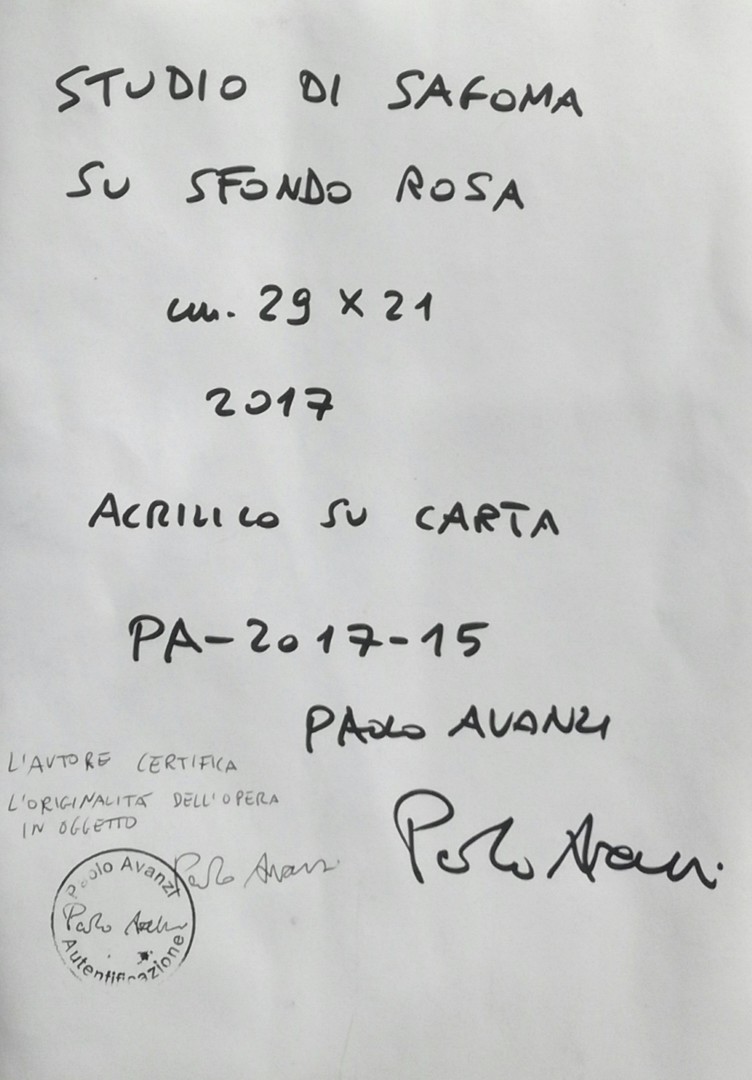 STUDIO DI SAGOMA
SU SFONDO ROSA
cm. 29 X 21
2017
ACRILICO SU CARTA
PA-2017-15
PAOLO AVANZI
L'AUTORE CERTIFICA
L'ORIGINALITÀ DELL'OPERA
IN OGGETTO
Paolo Avanzi
Paolo Avanzi
Paolo Avanzi
Paolo Avanzi
Autentificazione